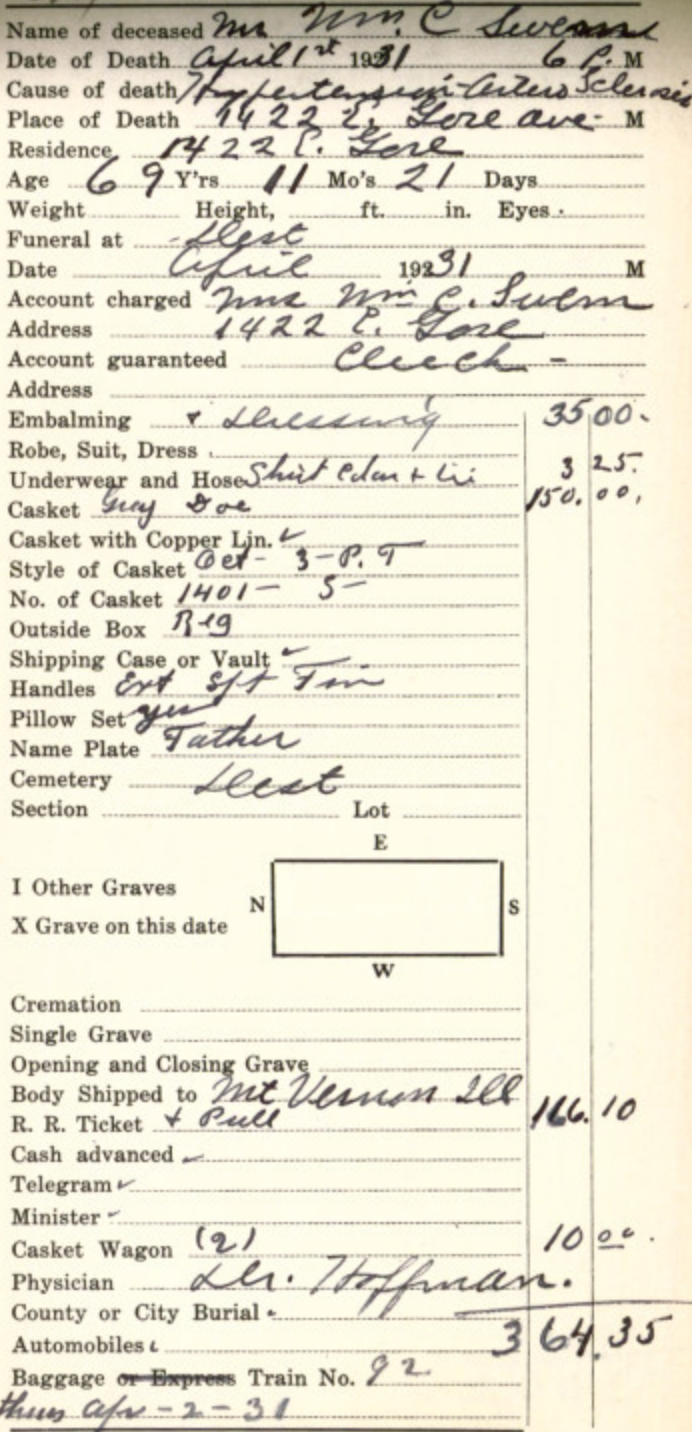 Name of deceased Mr Wm. C Swem
Date of Death April 1st 1931 6 P. M
Cause of death Hypertension - Arterio Sclerosis
Place of Death 1422 E. Gore ave - M
Residence 1422 E. Gore
Age 69 Y'rs 11 Mo's 21 Days
Weight Height, ft. in. Eyes
Funeral at - Dest
Date April 19231 M
Account charged Mrs Wm C. Swem
Address 1422 E. Gore
Account guaranteed Check -
Address
Embalming + Dressing 35 00-
Robe, Suit, Dress
Underwear and Hose Shirt Colar + Tie 3 25.
Casket Gray Doe 150. 00.
Casket with Copper Lin. ✓
Style of Casket Oct - 3 - P. T
No. of Casket 1401 - 5 -
Outside Box Reg
Shipping Case or Vault ✓
Handles Ext Sft Tin
Pillow Set yes
Name Plate Father
Cemetery Dest
Section Lot
E
I Other Graves
N S
X Grave on this date
W
Cremation
Single Grave
Opening and Closing Grave
Body Shipped to Mt Vernon Ill
R. R. Ticket + Pull 166. 10
Cash advanced ✓
Telegram ✓
Minister ✓
Casket Wagon (2) 10 00.
Physician Dr. Hoffman.
County or City Burial
Automobiles 364.35
Baggage or Express Train No. 92
Thurs Apr - 2 - 31